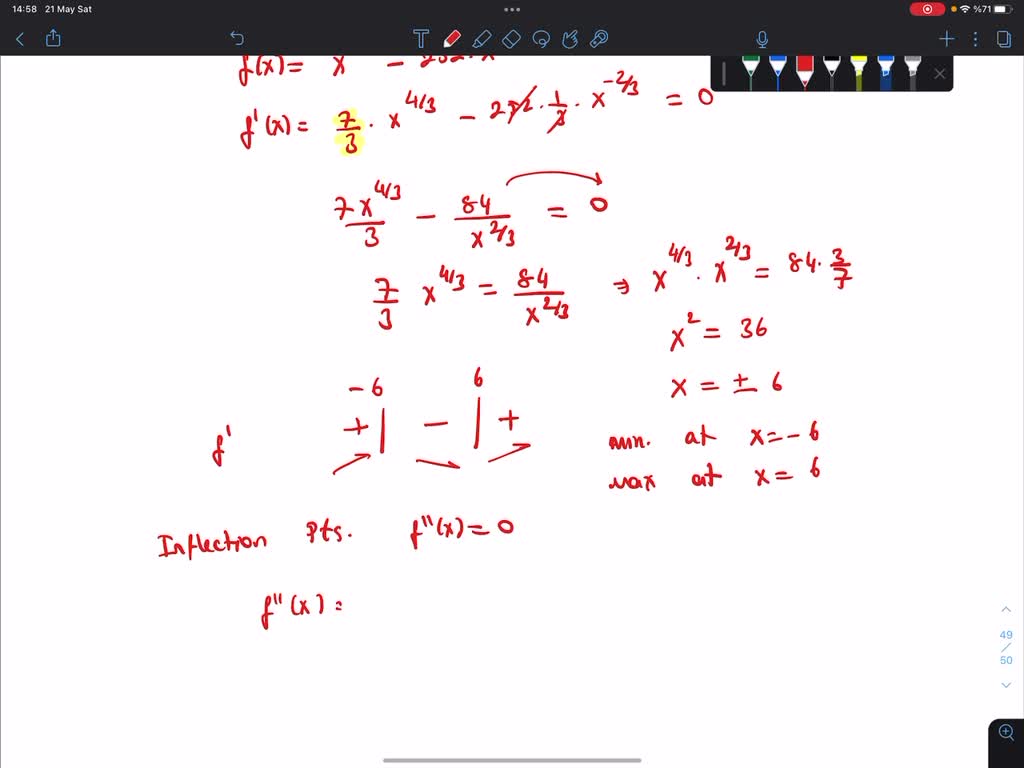 14:58 21 May Sat
%71
f(x) = x - 252 · x
f'(x) = 7/3 · x^4/3 - 252 · 1/3 · x^-2/3 = 0
7x^4/3 / 3 - 84 / x^2/3 = 0
7/3 x^4/3 = 84 / x^2/3 ⇒ x^4/3 · x^2/3 = 84 · 3/7
x² = 36
x = ± 6
-6 6
f' + | - | +
min. at x = -6
max at x = 6
Inflection Pts. f"(x) = 0
f"(x) =
49
/
50